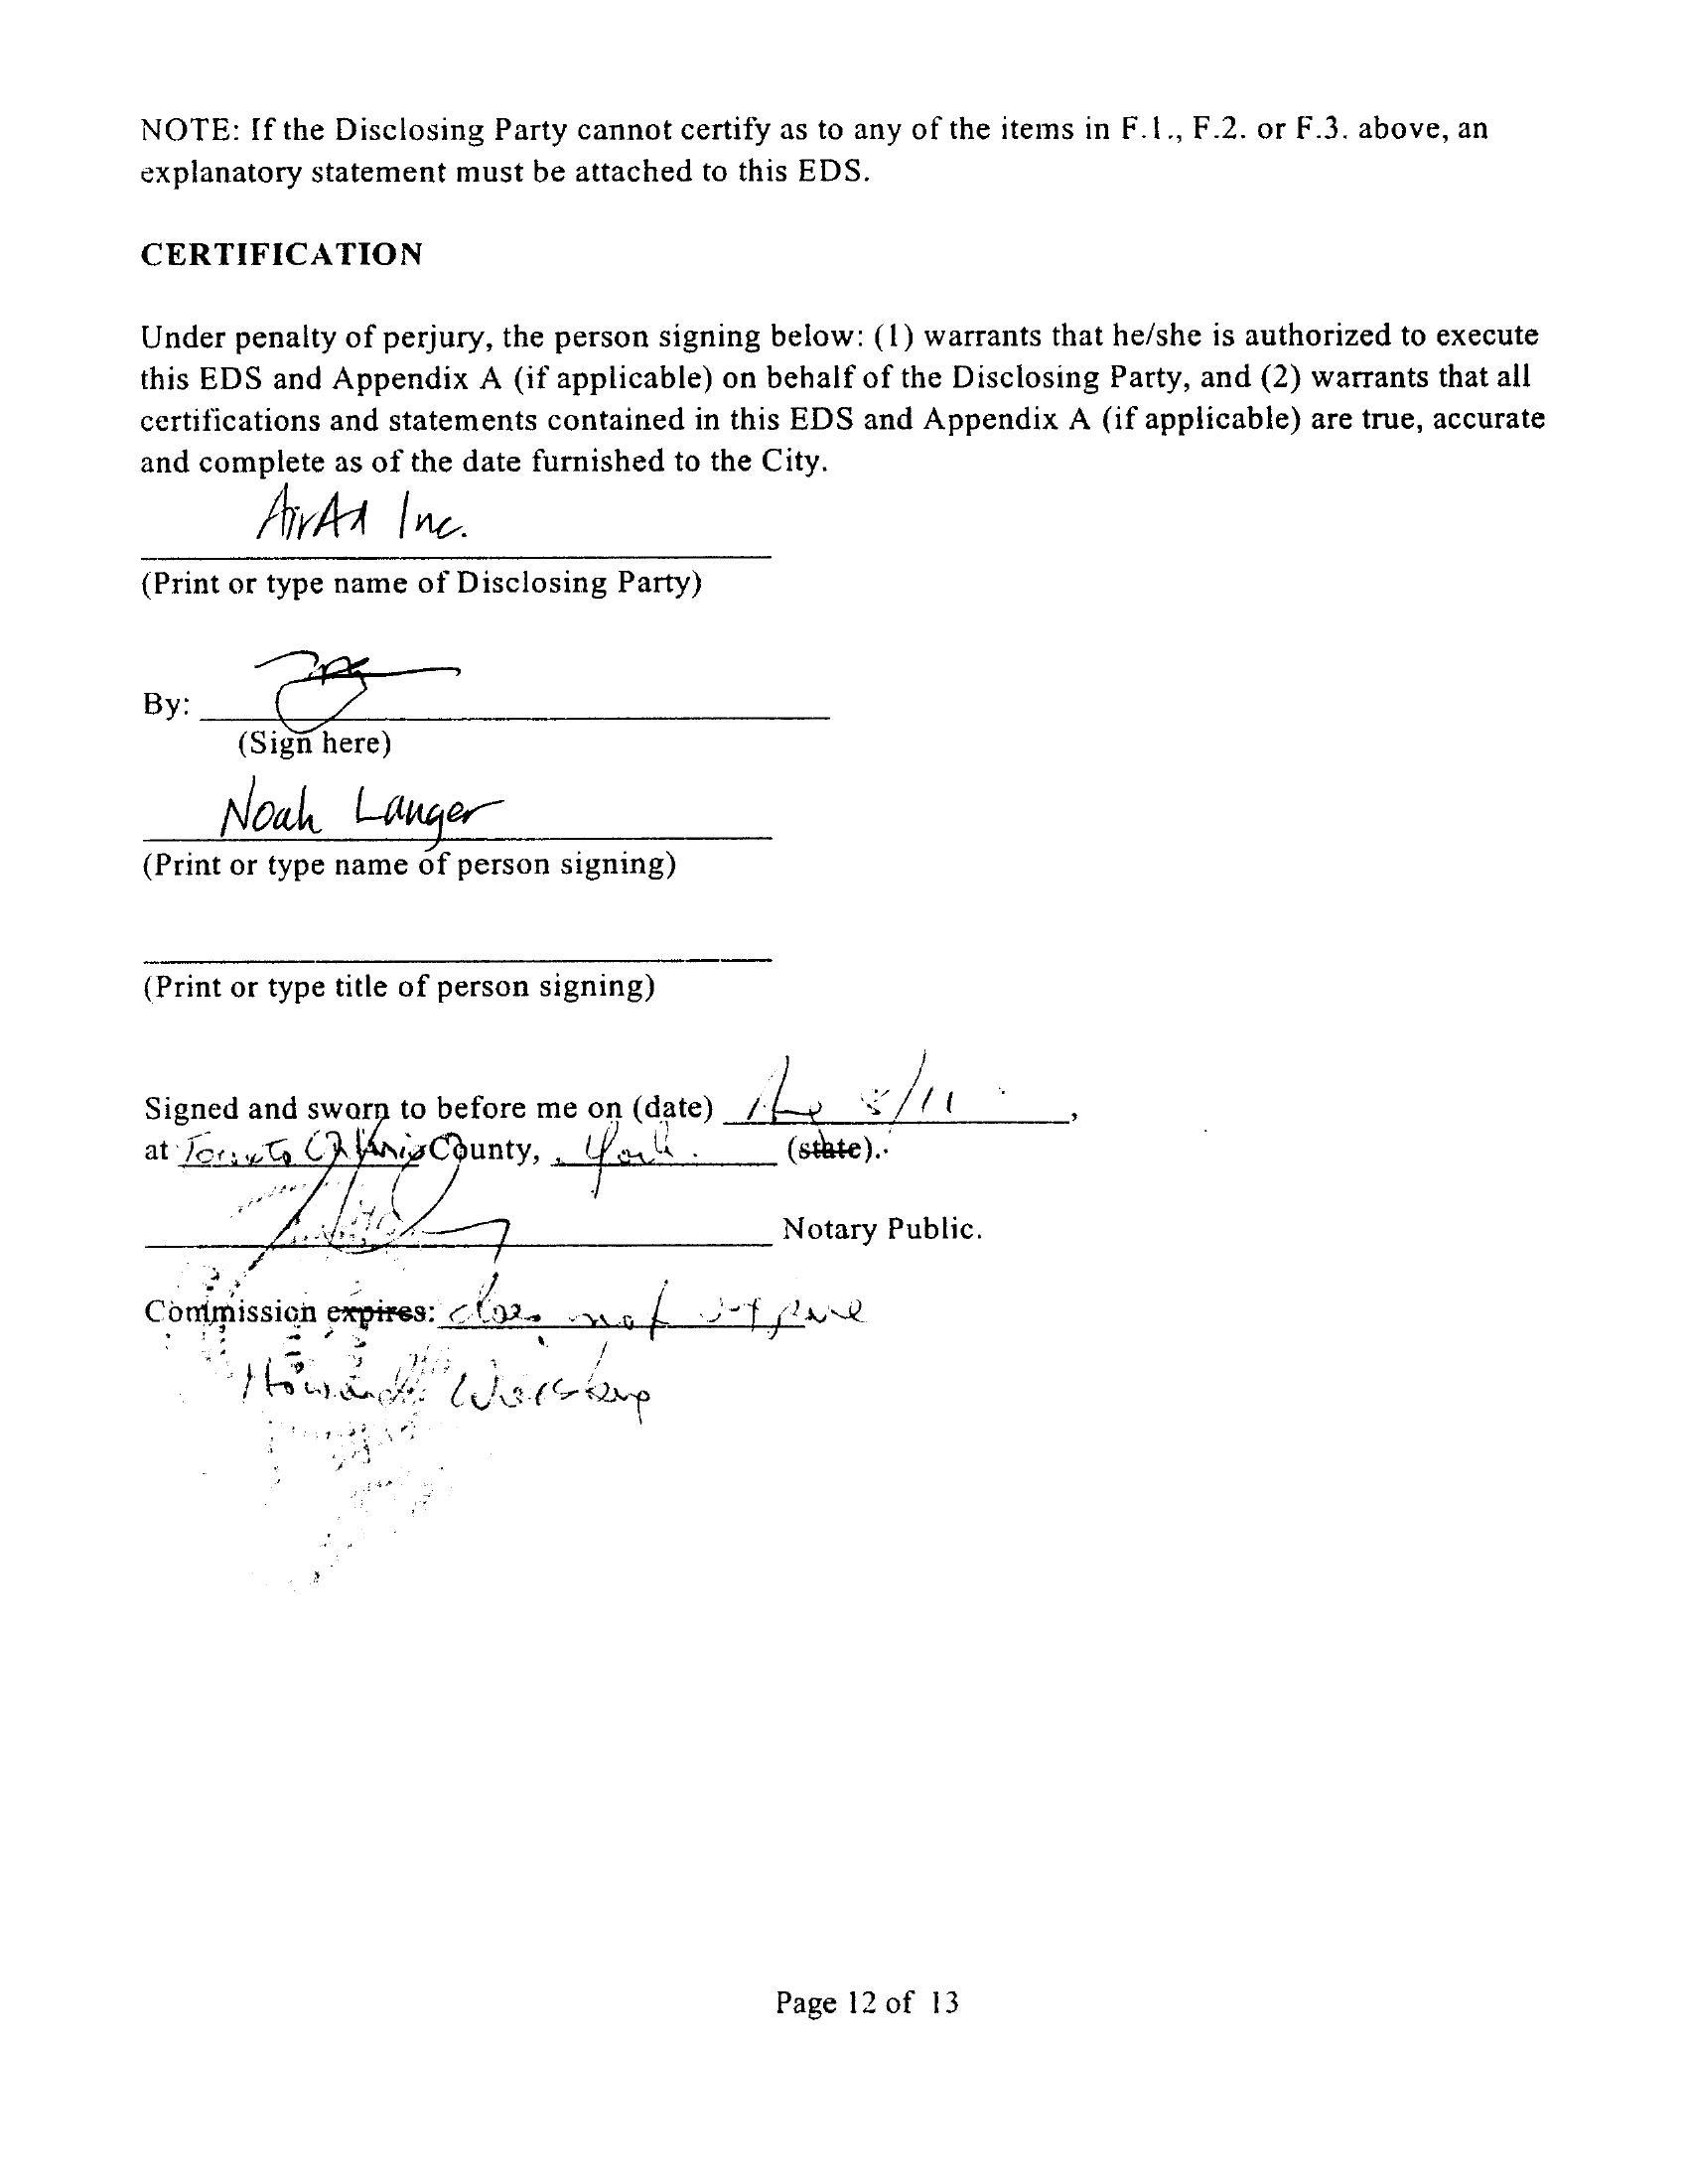 NOTE: If the Disclosing Party cannot certify as to any of the items in F.1., F.2. or F.3. above, an
explanatory statement must be attached to this EDS.
CERTIFICATION
Under penalty of perjury, the person signing below: (1) warrants that he/she is authorized to execute
this EDS and Appendix A (if applicable) on behalf of the Disclosing Party, and (2) warrants that all
certifications and statements contained in this EDS and Appendix A (if applicable) are true, accurate
and complete as of the date furnished to the City.
AirAd Inc.
(Print or type name of Disclosing Party)
By:
(Sign here)
Noah Langer
(Print or type name of person signing)
(Print or type title of person signing)
Signed and sworn to before me on (date) 8/11,
at Toronto County, York. (state).
Notary Public.
Commission expires: does not expire
Howard
Page 12 of 13